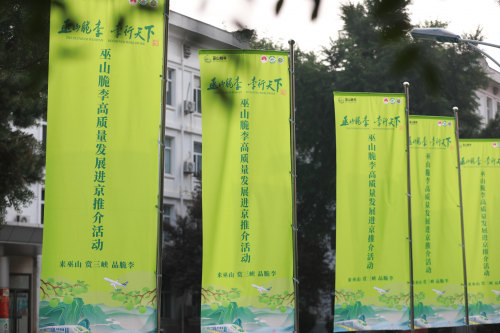 巫山脆李 李行天下
巫山脆李高质量发展进京推介活动
来巫山 赏三峡 品脆李
巫山脆李 李行天下
巫山脆李高质量发展进京推介活动
来巫山 赏三峡 品脆李
巫山脆李 李行天下
巫山脆李高质量发展进京推介活动
来巫山 赏三峡 品脆李
巫山脆李高质量发展进京推介活动